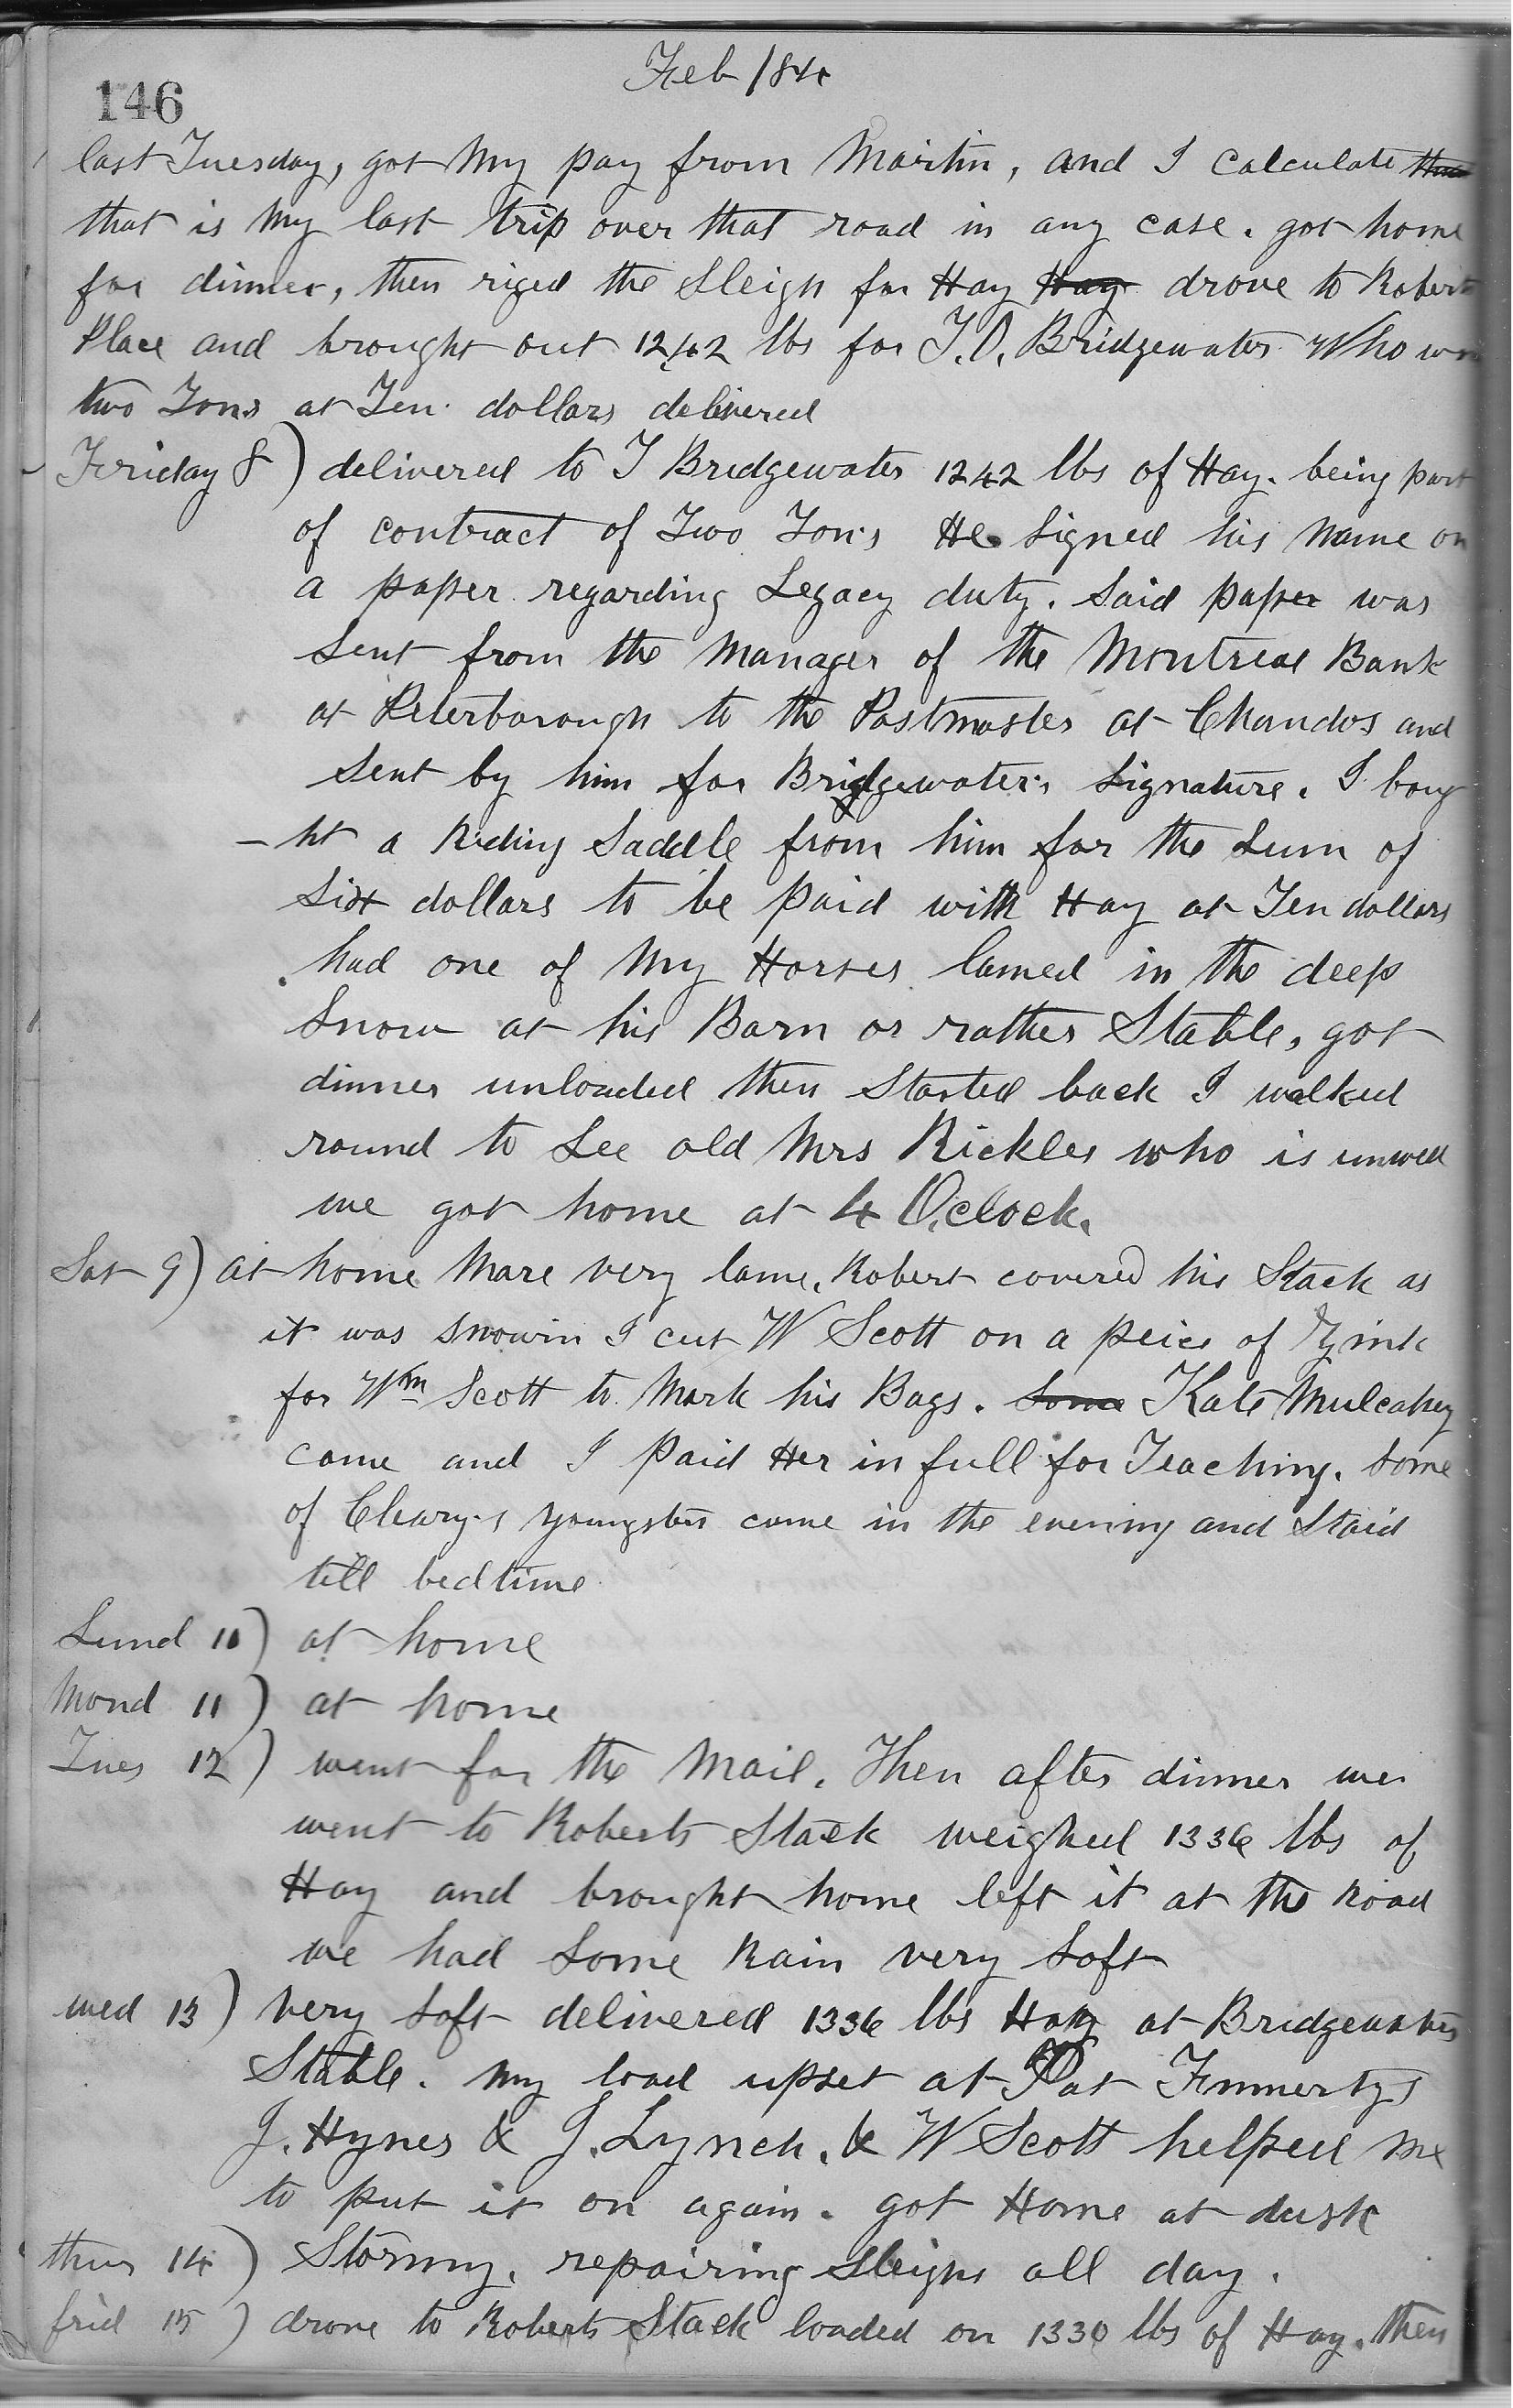 Feb /84
146
last Tuesday, got my pay from Martin, and I calculate
that is my last trip over that road in any case. got home
for dinner, then riged the Sleigh for Hay Hay drove to Roberts
Place and brought out 1242 lbs for J.O. Bridgewater Who
two Tons at Ten dollars delivered
Friday 8) delivered to J Bridgewater 1242 lbs of Hay. being part
of contract of Two Tons He Signed his name on
a paper regarding Legacy duty. Said paper was
Sent from the Manager of the Montreal Bank
at Peterborough to the Postmaster at Chandos and
Sent by him for Bridgewater's Signature. I boug
-ht a Riding Saddle from him for the Sum of
Six dollars to be paid with Hay at Ten dollars
had one of my Horses lamed in the deep
Snow at his Barn or rather Stable, got
dinner unloaded then Started back I walked
round to See old Mrs Rickles who is unwell
we got home at 4 O,clock.
Sat 9) at home Mare very lame. Robert covered his Stack as
it was snowin I cut W Scott on a peice of Zink
for Wm Scott to Mark his Bags. Some Kate Mulcahey
came and I paid Her in full for Teaching. Some
of Cleary's youngsters came in the evening and Staid
till bedtime
Sund 10) at home
Mond 11) at home
Tues 12) went for the Mail. Then after dinner we
went to Roberts Stack weighed 1336 lbs of
Hay and brought home left it at the Road
we had Some Rain very Soft
wed 13) very Soft delivered 1336 lbs Hay at Bridgewaters
Stable. my load upset at Pat Finnertys
J. Hynes & J. Lynch. & W Scott helped me
to put it on again. got Home at dusk
thurs 14) Stormy. repairing Sleighs all day.
frid 15) drove to Roberts Stack loaded on 1330 lbs of Hay. then